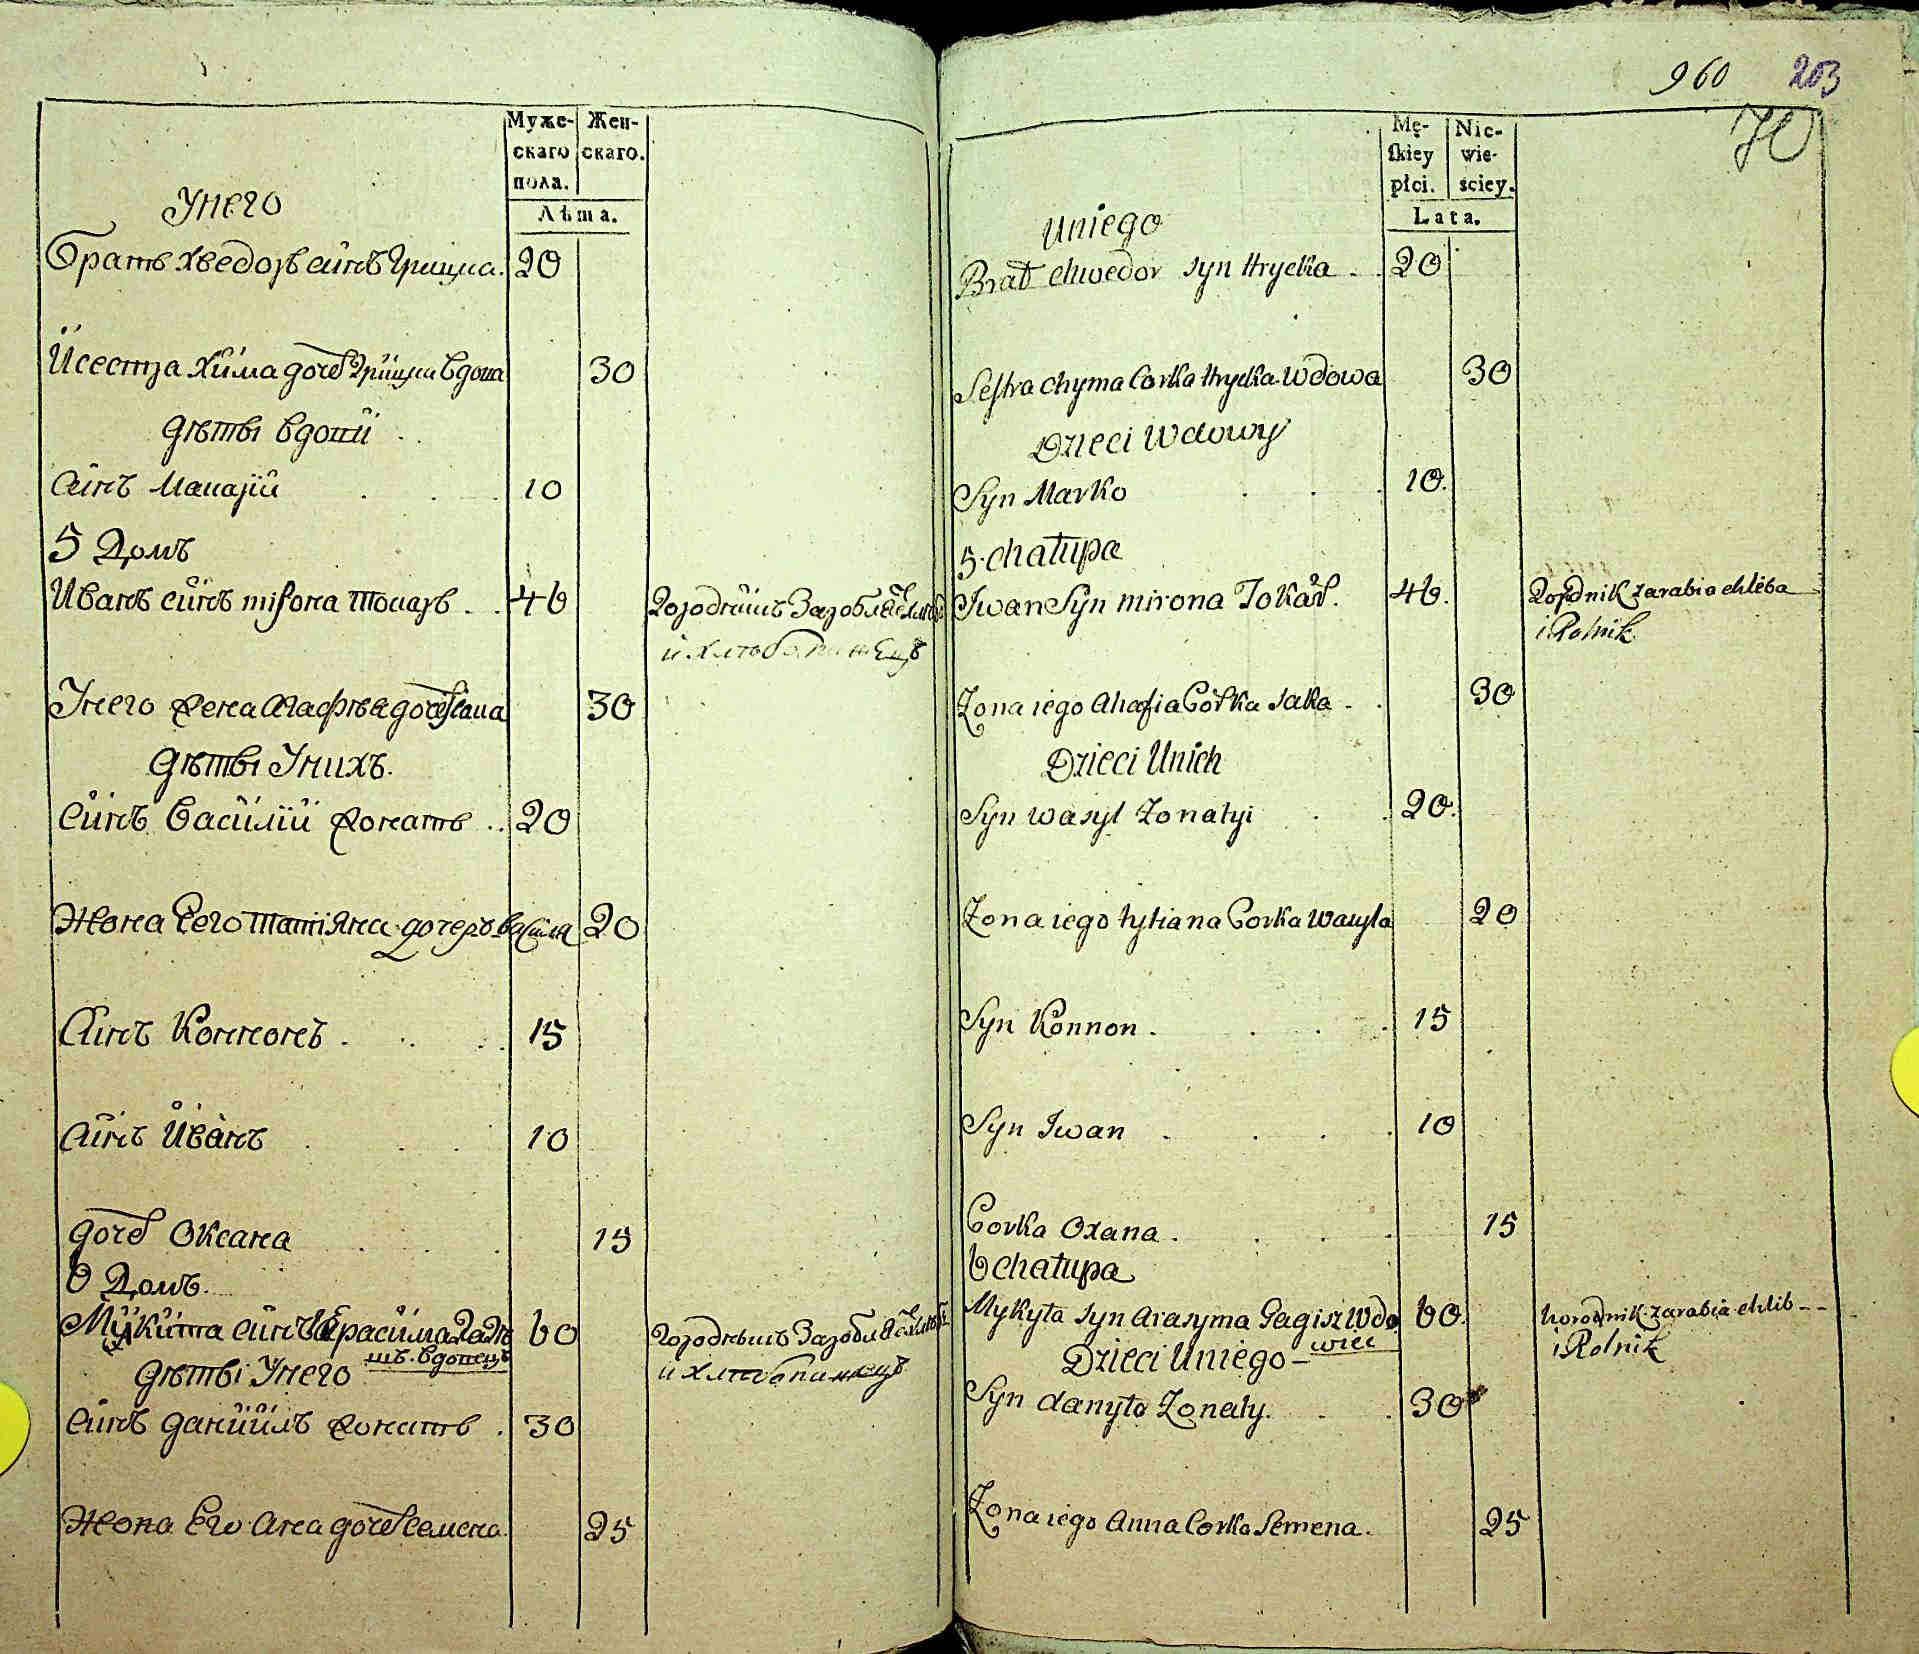 Муже-
скаго
пола.
Жен-
скаго.
Лѣта.
Унего
Братъ Хведоръ синъ Грицка. 20
И сестра Хима дочь Грицка вдова 30
Дѣты вдови
Синъ Макарій 10
5 Домъ
Иванъ синъ Мирона Токаръ 46
Городникъ Зароблае хлиба
и хлѣбопашецъ
Унего жена Агафѣя дочь Сака 30
Дѣты Унихъ.
Синъ Василій жонатъ 20
Жона Его Татіяна дочеръ василя 20
Синъ Коннонъ 15
Синъ Иванъ 10
дочь Оксана 15
6 Домъ
Мукита синъ Герасима
шъ. вдовецъ 60
Городникъ Зароблае хлиба
и хлѣбопашецъ
Дѣты Унего
Синъ Даниилъ жонатъ 30
Жона Его Ана дочь Семена 25
960 203
70
Mę-
skiey
płci.
Nie-
wie-
sciey.
Lata.
Uniego
Brat Chwedor syn Hrycka 20
Sestra Chyma Corka Hrycka Wdowa 30
Dzieci Wdowy
Syn Marko 10
5. Chałupa
Iwan Syn Mirona Tokar. 46.
zarabia chleba
i Rolnik
Zona iego Ahafia Corka Saka 30
Dzieci Unich
Syn Wasyl Zonatyi 20.
Zona iego tytiana Corka Wasyla 20
Syn Konnon 15
Syn Iwan 10
Corka Oxana 15
6 Chałupa
Mykyta syn Arasyma Gagisz Wdo
wiec 60.
horodnik zarabia chlib
i Rolnik
Dzieci Uniego
Syn danyło Zonaty. 30
Zona iego Anna Corka Semena. 25